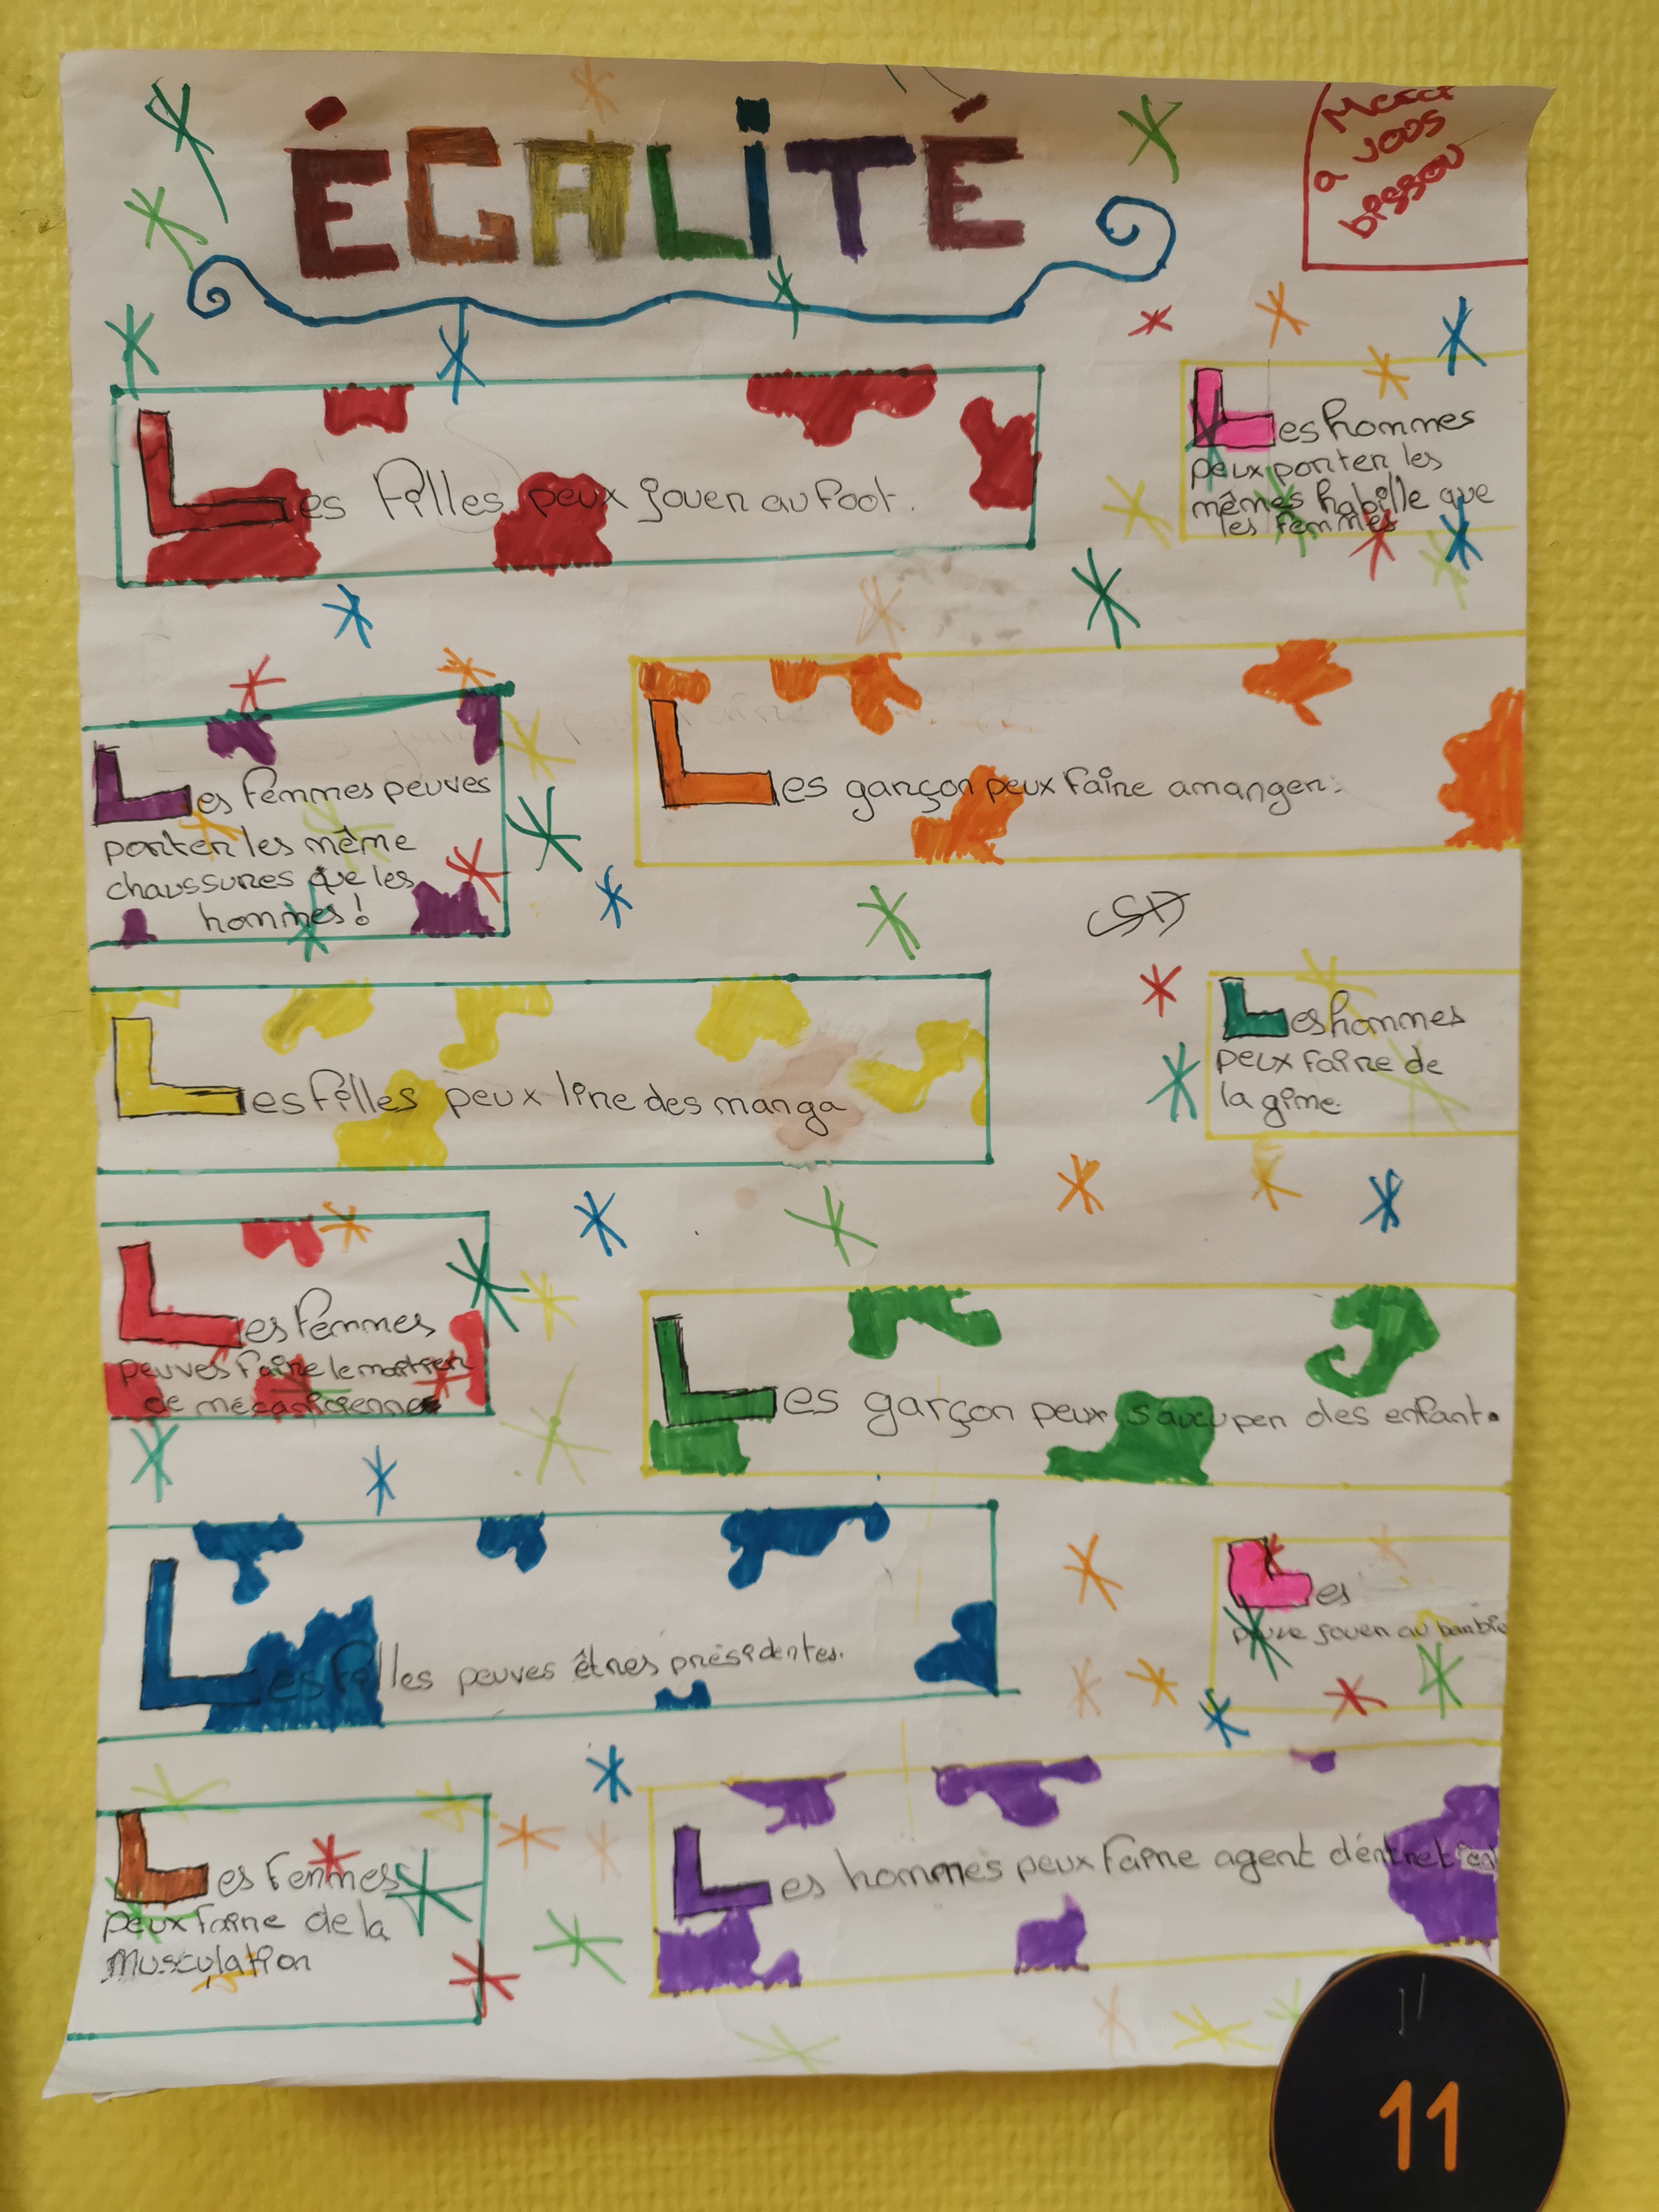 ÉGALITÉ
Merci
a vous
bissou
Les filles peux jouer au foot.
Les hommes
peux porter les
mêmes habille que
les femmes
Les femmes peuves
porter les même
chaussures que les
hommes!
Les garçon peux faire a manger.
Les filles peux lire des manga
Les hommes
peux faire de
la gime.
Les femmes
peuves faire le
de mécanicienne
Les garçon peux s'aucuper des enfant.
Les filles peuves êtres présidentes.
Les
jouer au
Les femmes
peux faire de la
musculation
Les hommes peux faire agent d'éntretien
11